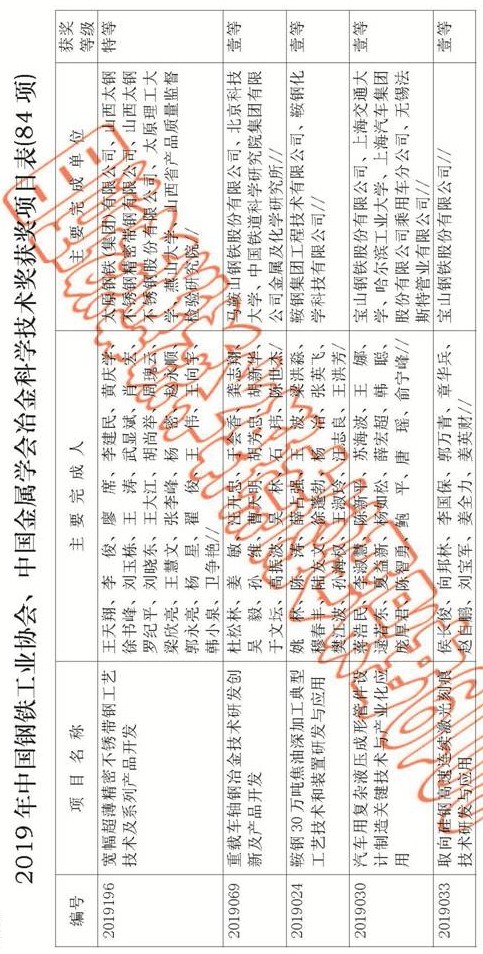 2019年中国钢铁工业协会、中国金属学会冶金科学技术奖获奖项目表(84项)
编号 项目名称 主要完成人 主要完成单位 获奖
等级
2019196
宽幅超薄精密不锈带钢工艺
技术及系列产品开发
王天翔、李 俊、廖 席、李建民、黄庆学、
徐书峰、刘玉栋、王 涛、武显斌、肖 宏、
罗纪平、刘晓东、王大江、胡尚举、周瑰云、
梁欣亮、王慧文、张李峰、杨 密、赵永顺、
郭永亮、杨 星、翟 俊、王 伟、王向宇、
韩小泉、卫争艳//
太原钢铁(集团)有限公司、山西太钢
不锈钢精密带钢有限公司、山西太钢
不锈钢股份有限公司、太原理工大
学、燕山大学、山西省产品质量监督
检验研究院//
特等
2019069
重载车轴钢冶金技术研发创
新及产品开发
杜松林、姜 敏、汪开忠、于会香、龚志翔、
吴 毅、孙 维、曹天明、胡芳忠、胡新华、
于文坛、高振波、吴 林、石 玮、陈世杰//
马鞍山钢铁股份有限公司、北京科技
大学、中国铁道科学研究院集团有限
公司金属及化学研究所//
壹等
2019024
鞍钢30万吨焦油深加工典型
工艺技术和装置研发与应用
姚 林、陈 涛、薛占强、王 波、梁洪淼、
穆春丰、陆友文、徐蓬勃、杨 冶、张英飞、
樊江波、孙海权、王淑伶、白志良、王洪芳//
鞍钢集团工程技术有限公司、鞍钢化
学科技有限公司//
壹等
2019030
汽车用复杂液压成形管件设
计制造关键技术与产业化应
用
蒋浩民、李淑慧、陈新平、苏海波、王 娜、
逯若东、夏益新、杨如松、薛宏超、韩 聪、
庞厚君、陈智勇、鲍 平、唐 瑶、俞宁峰//
宝山钢铁股份有限公司、上海交通大
学、哈尔滨工业大学、上海汽车集团
股份有限公司乘用车分公司、无锡法
斯特管业有限公司//
壹等
2019033
取向硅钢高速连续激光刻痕
技术研发与应用
侯长俊、向邦林、李国保、郭万青、章华兵、
赵自鹏、刘宝军、姜全力、姜英财//
宝山钢铁股份有限公司//
壹等